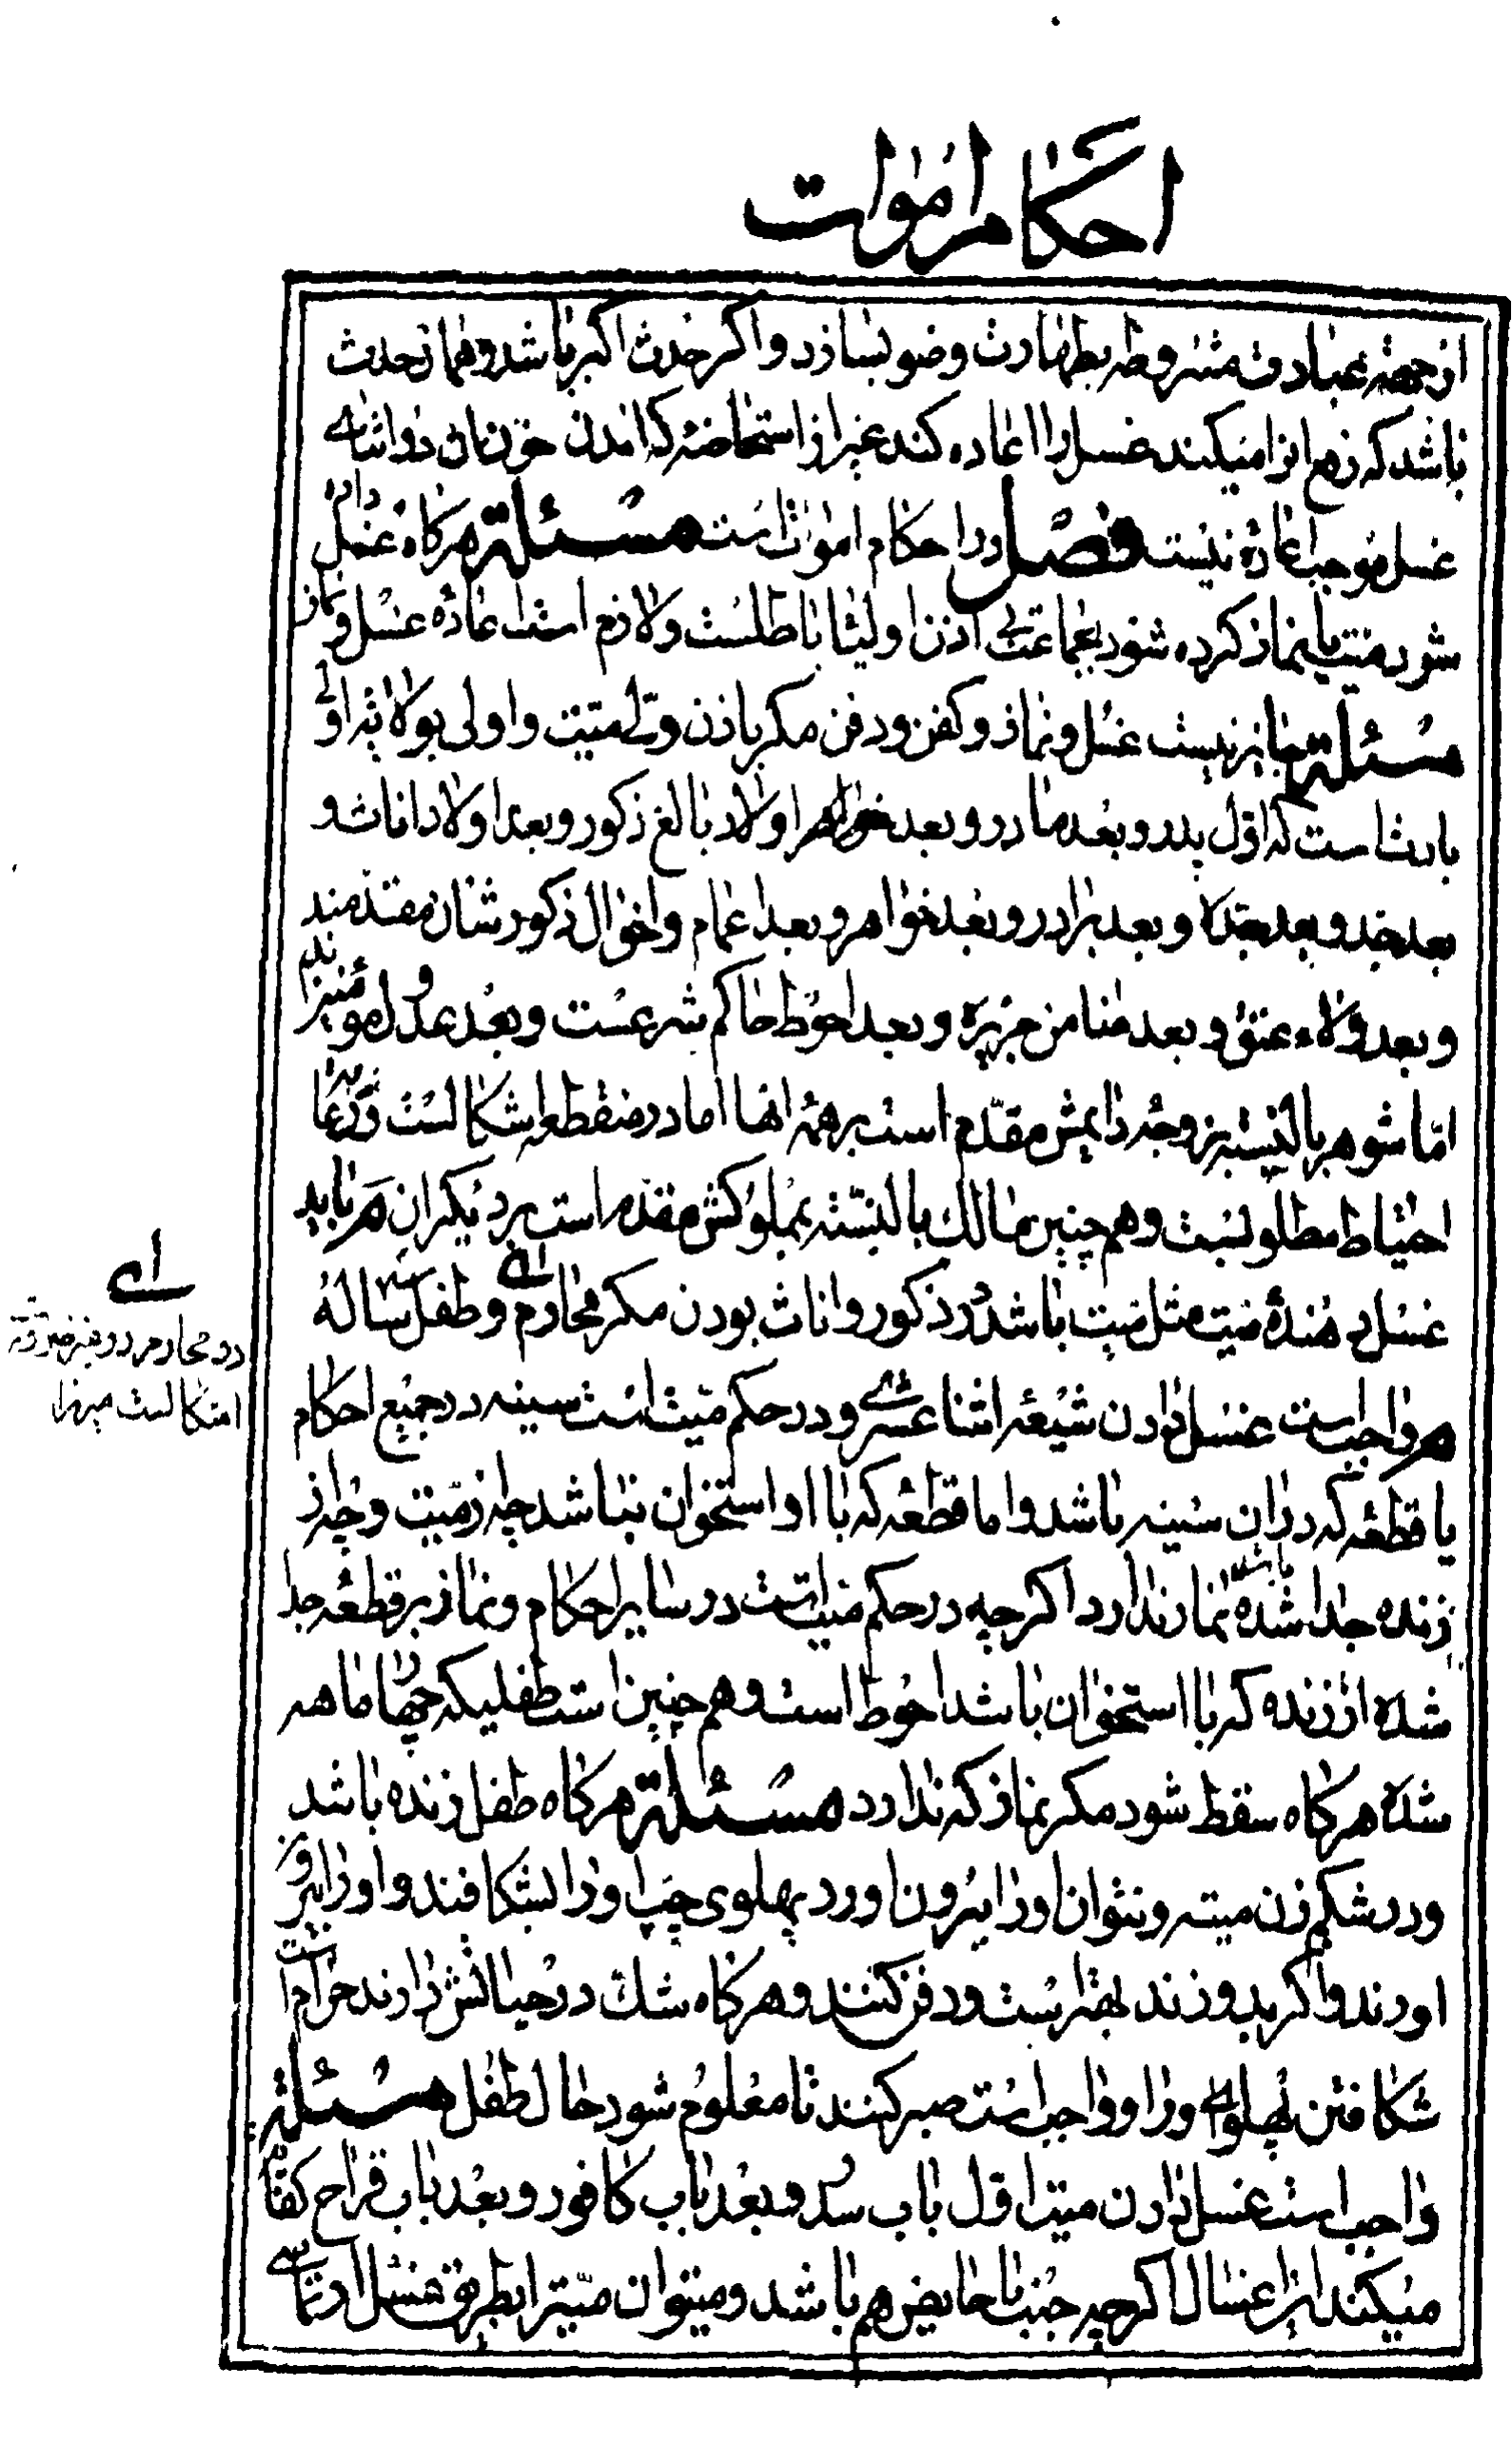 احکام اموات
از جهة عبادت مشروطه بطهارت وضو بسازد و اکر حدث اکبر باشد و هماز حدث
باشد که رفع انرا میکند غسل را اعاده کند غیر از استحاضه که امدن خون ان در اثنای
غسل موجب اعاده نیست فصل در احکام اموات است مسئلة هرکاه غسل داده
شود میت یا نماز کرده شود بجماعت بی اذن اولیا باطلست و لازم است اعاده غسل و نماز
مسئلة جایز نیست غسل و نماز و کفن و دفن مکر باذن ولی میت و اولی بولایة اولی
بارث است که اول پدر و بعد مادر و بعد اولاد بالغ ذکور و بعد اولاد اناث و
بعد جد و بعد جده و بعد برادر و بعد خواهر و بعد اعمام و اخوال ذکورشان مقدمند
و بعد ولاء عتق و بعد ضامن جریره و بعد احوط حاکم شرعست و بعد عدول مؤمنین
اما شوهر بالنسبه بزوجه دایمش مقدم است بر همه انها اما در منقطعه اشکالست
احتیاط مطلوبست و هم چنین مالک بالنسبه بمملوکش مقدم است بر دیکران م باید
غسل دهندۀ میت مثل میت باشد در ذکور و اناث بودن مکر محارم و طفل سه ساله
م واجب است غسل دادن شیعه اثنا عشری و در حکم میت است سینه در جمیع احکام
یا قطعه که در ان سینه باشد و اما قطعه که با او استخوان نباشد چه از میت و چه از
زنده جدا شده باشد نماز ندارد اکرچه در حکم میت است در سایر احکام و نماز بر قطعه جدا
شده از زنده که با استخوان باشد احوط است و هم چنین است طفلیکه چهار ماهه
شده هرکاه سقط شود مکر نماز که ندارد مسئلة هرکاه طفل زنده باشد
و در شکم زن میته و نتوان او را بیرون اورد پهلوی چپ او را بشکافند و او را بیرون
اورند و اکر بدوزند بهتر است و دفن کنند و هرکاه شک در حیاتش دارند حرام است
شکافتن پهلوی او را و واجب است صبر کنند تا معلوم شود حال طفل مسئلة
واجب است غسل دادن میت اول باب سدر و بعد باب کافور و بعد باب قراح کفایة
میکند این اغسال اکرچه جنب یا حایض هم باشد و میتوان میت را بطریق غسل ارتماسی
ای
در محارم در غیر ضرورة
اشکالست میرزا